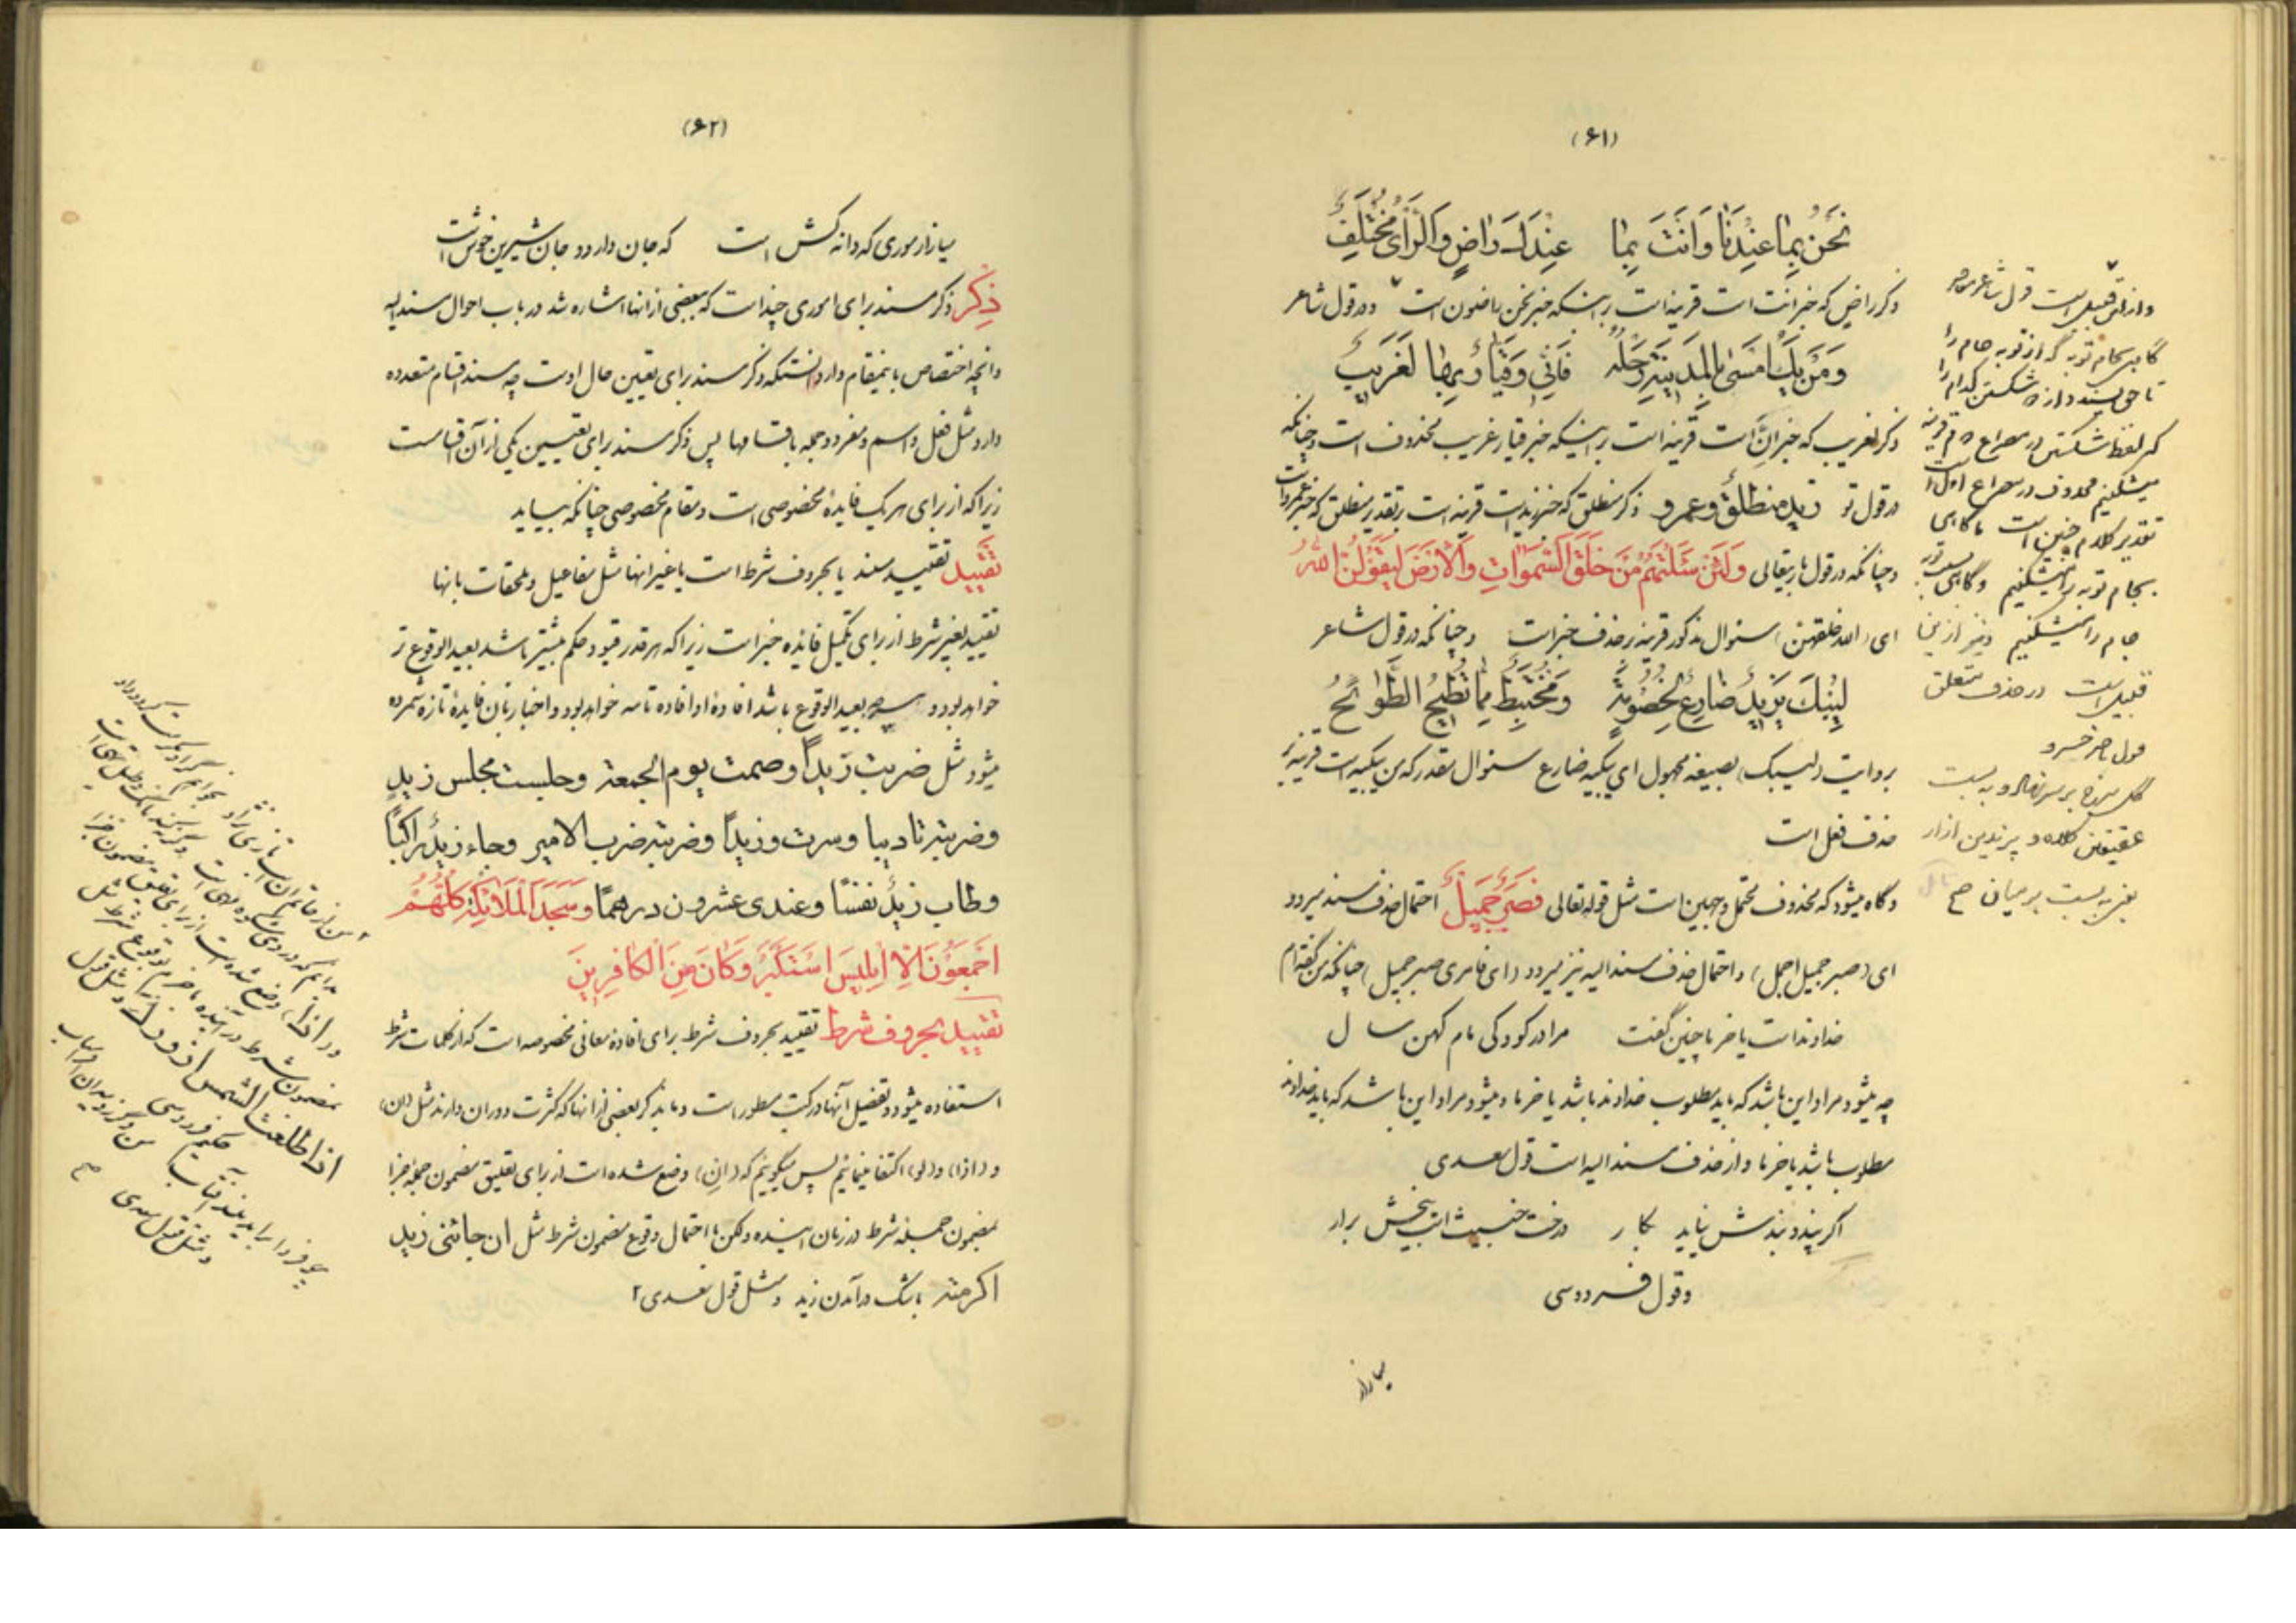 (۶۱)
نَحْنُ بِمٰا عِنْدَنٰا وَاَنْتَ بِمٰا عِنْدَكَ رٰاضٍ وَالرَّأىُ مُخْتَلِفٌ
ذکر راض که خبر انت است قرینه است بر اینکه خبر نحن راضون است و در قول شاعر
وَمَنْ يَكُ اَمْسىٰ بِالْمَدينَةِ رَحْلُهُ فَاِنّى وَقَيّٰارٌ بِهٰا لَغَريبٌ
ذکر لغریب که خبر اِنَّ است قرینه است بر اینکه خبر قیار غریب محذوف است و چنانکه
در قول تو زيد منطلقٌ وعمرو ذکر منطلق که خبر زید است قرینه است بر تقدیر منطلق که خبر عمرو است
و چنانکه در قول باریتعالی وَلَئِنْ سَئَلْتَهُمْ مَنْ خَلَقَ السَّمٰوٰاتِ وَالْاَرْضَ لَيَقُولُنَّ اللّٰهُ
ای (الله خلقهن) سئوال مذکور قرینه بر حذف خبر است و چنانکه در قول شاعر
لِيُبْكَ يَزيدُ ضٰارِعٌ لِخُصُومَةٍ وَمُخْتَبِطٌ مِمّٰا تُطيحُ الطَّوٰائِحُ
بروایت (لیبک) بصیغه مجهول ای یبکیه ضارع سئوال مقدر که من یبکیه است قرینه بر
حذف فعل است
و گاه میشود که محذوف محتمل وجهین است مثل قوله تعالی فَصَبْرٌ جَميلٌ احتمال حذف مسند میرود
ای (صبر جمیل اجمل) و احتمال حذف مسند الیه نیز میرود (ای فامری صبر جمیل) چنانکه من گفته‌ام
خداوند است یا خر با چنین گفت مرا در کودکی مام کهن سال
چه میشود مراد این باشد که باید مطلوب خداوند باشد یا خر ما و میشود مراد این باشد که باید خداوند
مطلوب باشد یا خر ما و از حذف مسند الیه است قول سعدی
اگر پند و بندش نیاید بکار درخت خبیث است بیخش برار
و قول فردوسی
میازار
و از این قبیل است قول شاعر معاصر
گاهی بجام توبه گه از توبه جام را
کر لفظ شکستن در مصراع دوم قرینه
میشکنیم محذوف در مصراع اول است
تقدیر کلام چنین است ما گاهی
بجام توبه را میشکنیم و گاهی بسبب توبه
جام را میشکنیم و نیز از این
قبیل است در حذف متعلق
قول ناصر خسرو
گل سرخ بر سر نهاد و به بست
عقیقین کلاه و پرندین ازار
یعنی به بست بر میان ح
(۶۲)
میازار موری که دانه کش است که جان دارد و جان شیرین خوش است
ذِكر ذکر مسند برای اموری چند است که بعضی از انها اشاره شد در باب احوال مسند الیه
و انچه اختصاص باینمقام دارد انستکه ذکر مسند برای تعیین حال اوست چه مسند اقسام متعدده
دارد مثل فعل و اسم و مفرد و جمله باقسامها پس ذکر مسند برای تعیین یکی از آن اقسامست
زیرا که از برای هر یک فایده مخصوصی است و مقام مخصوصی چنانکه بیاید
تقييد تقیید مسند یا بحروف شرط است یا غیر انها مثل مفاعیل و ملحقات بانها
تقیید بغیر شرط از برای تکمیل فایده خبر است زیرا که هر قدر قیود حکم بیشتر باشد بعید الوقوع تر
خواهد بود و هر چه بعید الوقوع باشد افاده او افاده تامه خواهد بود و اخبار بان فایده تازه شمرده
میشود مثل ضربت زيداً وصمت يوم الجمعة وجلست مجلس زيدٍ
وضربته تاديبا وسرت وزيداً وضربته ضرب الامير وجاء زيدٌ راكباً
وطاب زيدٌ نفسًا وعندى عشرون درهمًا وَسَجَدَ الْمَلٰائِكَةُ كُلُّهُمْ
اَجْمَعُونَ اِلّٰا اِبْليسَ اسْتَكْبَرَ وَكٰانَ مِنَ الْكٰافِرينَ
تقييد بحروف شرط تقیید بحروف شرط برای افاده معانی مخصوصه است که از کلمات شرط
استفاده میشود و تفصیل آنها در کتب مسطور است و ما بذکر بعضی از انها که کثرت دوران دارند مثل (ان)
و (اذا) و (لو) اکتفا مینمائیم پس میگوییم که (اِن) وضع شده است از برای تعلیق مضمون جمله جزا
بمضمون جمله شرط در زمان اینده ولکن با احتمال وقوع مضمون شرط مثل ان جائنى زيد
اكرمته باشک در آمدن زید و مثل قول سعدی ۲
و (اذا) وضع شده است از برای تعلیق مضمون جزا
بمضمون شرط در اینده با جزم بوقوع شرط مثل
اذا طلعت الشمس ازورك و مثل قول
حکیم فردوسی
چو فردا براید بلند آفتاب من و گرز و میدان و افراسیاب
و مثل قول سعدی ح